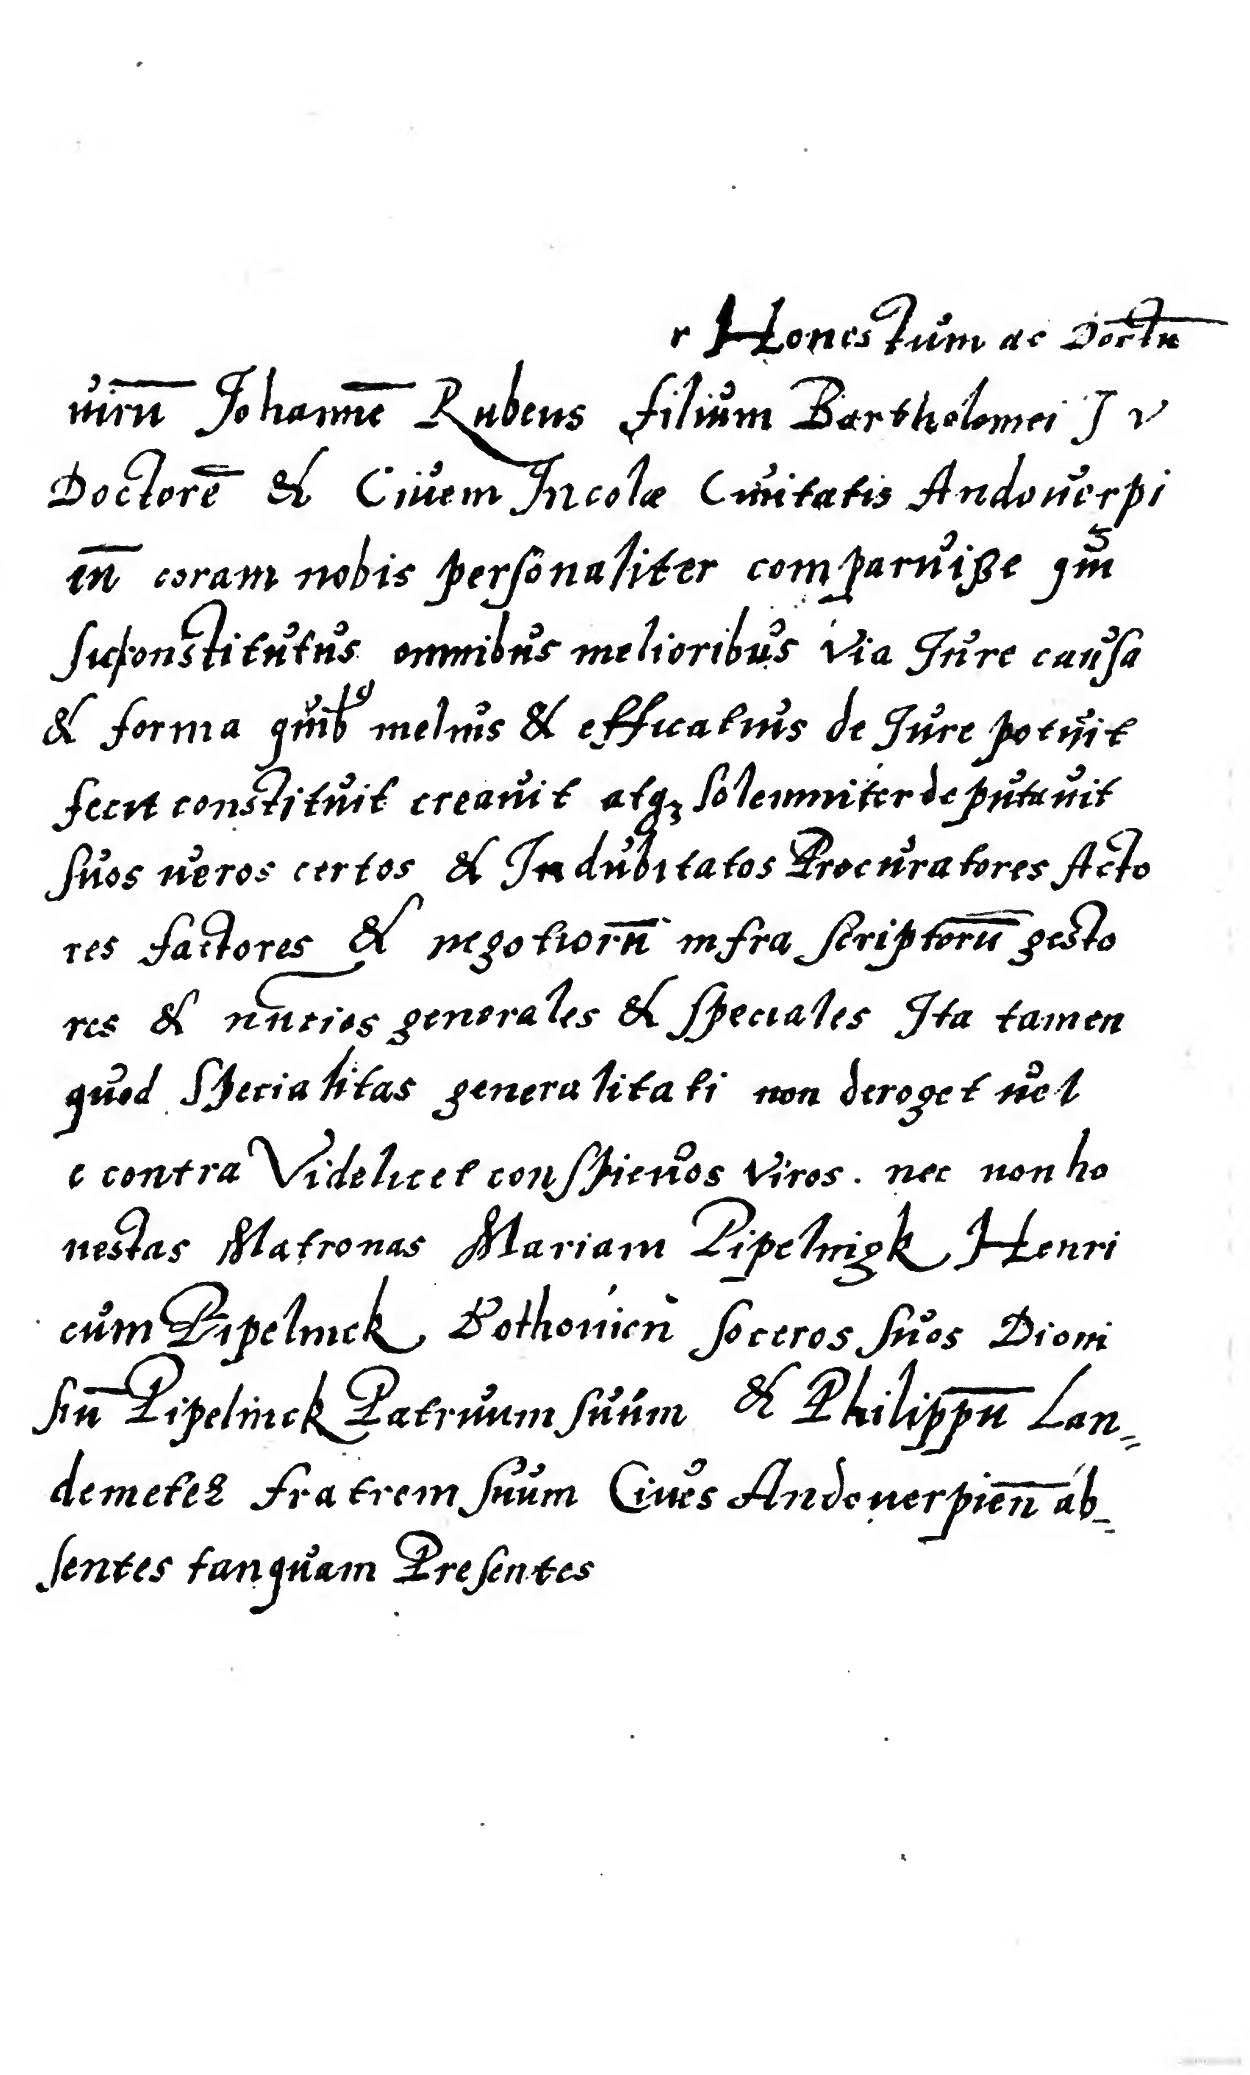 r Honestum ac Doctū
uirū Johannē Rubens filium Bartholomei J V
Doctorē & Ciuem Incolæ Ciuitatis Andouerpi
in̄ coram nobis personaliter comparuiße
omnibus melioribus via Jure causa
& forma quib⁹ melius & efficatius de Jure potuit
fecit constituit creauit atqꝫ solemniter deputauit
suos ueros certos & Indubitatos Procuratores Acto
res factores & negotiorū infra scriptorū gesto
res & nūtios generales & speciales Ita tamen
quod specialitas generalitati non deroget uel
e contra Videlicet conspicuos viros . nec non ho
nestas Matronas Mariam Pipelnigk Henri
cum Pipelinck soceros suos Dioni
siū Pipelinck Patruum suum & Philippū Lan⸗
demetez fratrem suum Ciues Andouerpien̄ ab⸗
sentes tanquam Presentes